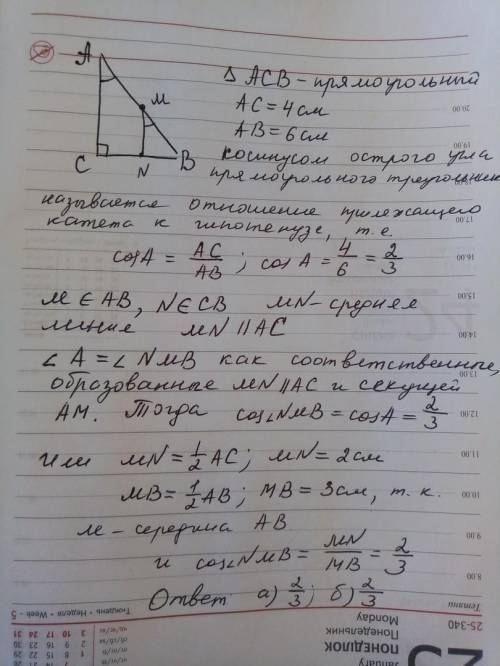 A
M
C
N
B
Δ ACB – прямоугольный
AC = 4 см
AB = 6 см
косинусом острого угла
прямоугольного треугольник
называется отношение прилежащего
катета к гипотенузе, т.е.
cosA = AC/AB ; cos A = 4/6 = 2/3
M ∈ AB, N ∈ CB MN – средняя
линия MN || AC
∠A = ∠NMB как соответственные,
образованные MN || AC и секущей
AM. Тогда cos∠NMB = cosA = 2/3
Или MN = 1/2 AC; MN = 2 см
MB = 1/2 AB; MB = 3 см, т. к.
M – середина AB
и cos∠NMB = MN/MB = 2/3
Ответ а) 2/3; б) 2/3
20.00
19.00
18.00
17.00
16.00
15.00
14.00
13.00
12.00
11.00
10.00
9.00
8.00
25-340
Monday
Понедельник
ПОНЕДІЛОК
January
Тиждень • Неделя • Week - 5